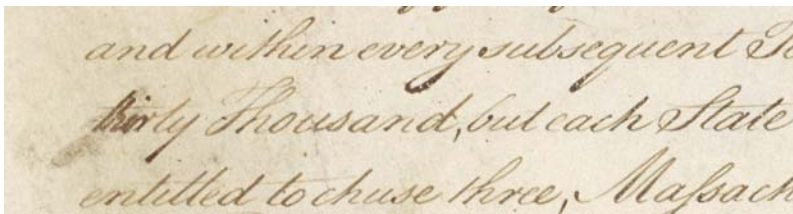 and within every subsequent Te
thirty Thousand, but each State
entitled to chuse three, Maſsach